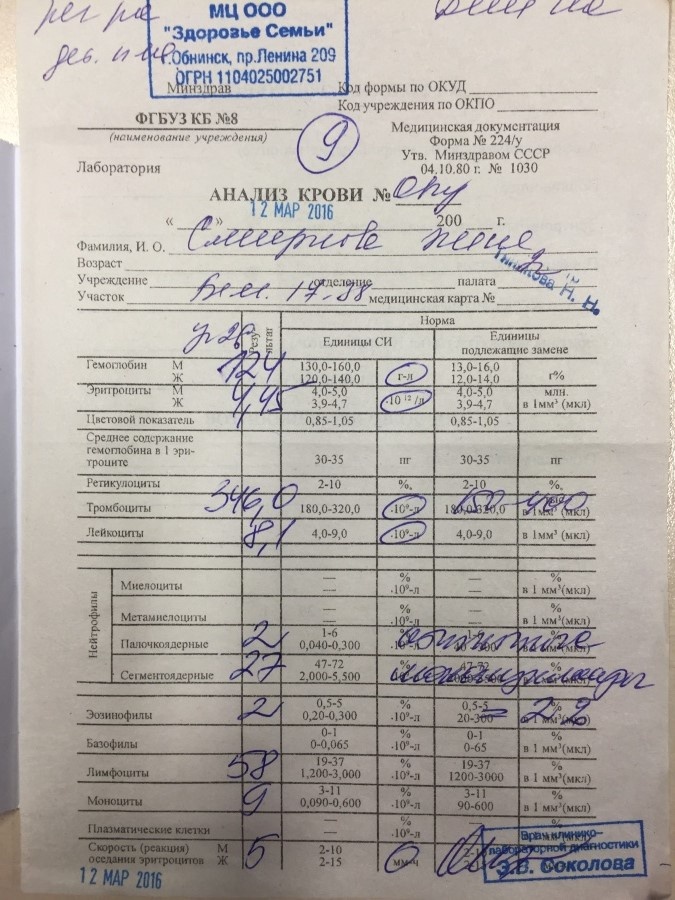 МЦ ООО
"Здоровье Семьи"
г.Обнинск, пр.Ленина 209
ОГРН 1104025002751
Минздрав
Код формы по ОКУД
Код учреждения по ОКПО
ФГБУЗ КБ №8
(наименование учреждения)
9
Медицинская документация
Форма № 224/у
Утв. Минздравом СССР
04.10.80 г. № 1030
Лаборатория
АНАЛИЗ КРОВИ №
12 МАР 2016
« » 200 г.
Фамилия, И. О. Смирнова
Возраст
Учреждение отделение палата
Участок медицинская карта №
Н. Н.
Результат Норма
Единицы СИ Единицы подлежащие замене
Гемоглобин М 124 130,0-160,0 г-л 13,0-16,0 г%
Ж 120,0-140,0 12,0-14,0
Эритроциты М 4,45 4,0-5,0 ·10¹²/л 4,0-5,0 млн.
Ж 3,9-4,7 3,9-4,7 в 1мм³ (мкл)
Цветовой показатель 0,85-1,05 0,85-1,05
Среднее содержание
гемоглобина в 1 эри-
троците 30-35 пг 30-35 пг
Ретикулоциты 2-10 %. 2-10 %.
Тромбоциты 346,0 180,0-320,0 ·10⁹-л 180,0-320,0 в 1мм³ (мкл)
Лейкоциты 8,1 4,0-9,0 ·10⁹-л 4,0-9,0 в 1мм³ (мкл)
Нейтрофилы
Миелоциты — % — %
— ·10⁹-л — в 1 мм³(мкл)
Метамиелоциты — % — %
— ·10⁹-л — в 1 мм³(мкл)
Палочкоядерные 2 1-6
0,040-0,300 ·10⁹-л в 1 мм³(мкл)
Сегментоядерные 27 47-72 % 47-72 %
2,000-5,500
Эозинофилы 2 0,5-5 % 0,5-5 %
0,20-0,300 ·10⁹-л 20-300 в 1 мм³(мкл)
Базофилы 0-1 % 0-1 %
0-0,065 ·10⁹-л 0-65 в 1 мм³(мкл)
Лимфоциты 58 19-37 % 19-37 %
1,200-3,000 ·10⁹-л 1200-3000 в 1 мм³(мкл)
Моноциты 9 3-11 % 3-11 %
0,090-0,600 ·10⁹-л 90-600 в 1 мм³(мкл)
Плазматические клетки — % — %
— ·10⁹-л — в 1 мм³(мкл)
Скорость (реакция) М 5 2-10
оседания эритроцитов Ж 2-15 мм-ч
Врач клинико-
лабораторной диагностики
Э.В. Соколова
12 МАР 2016